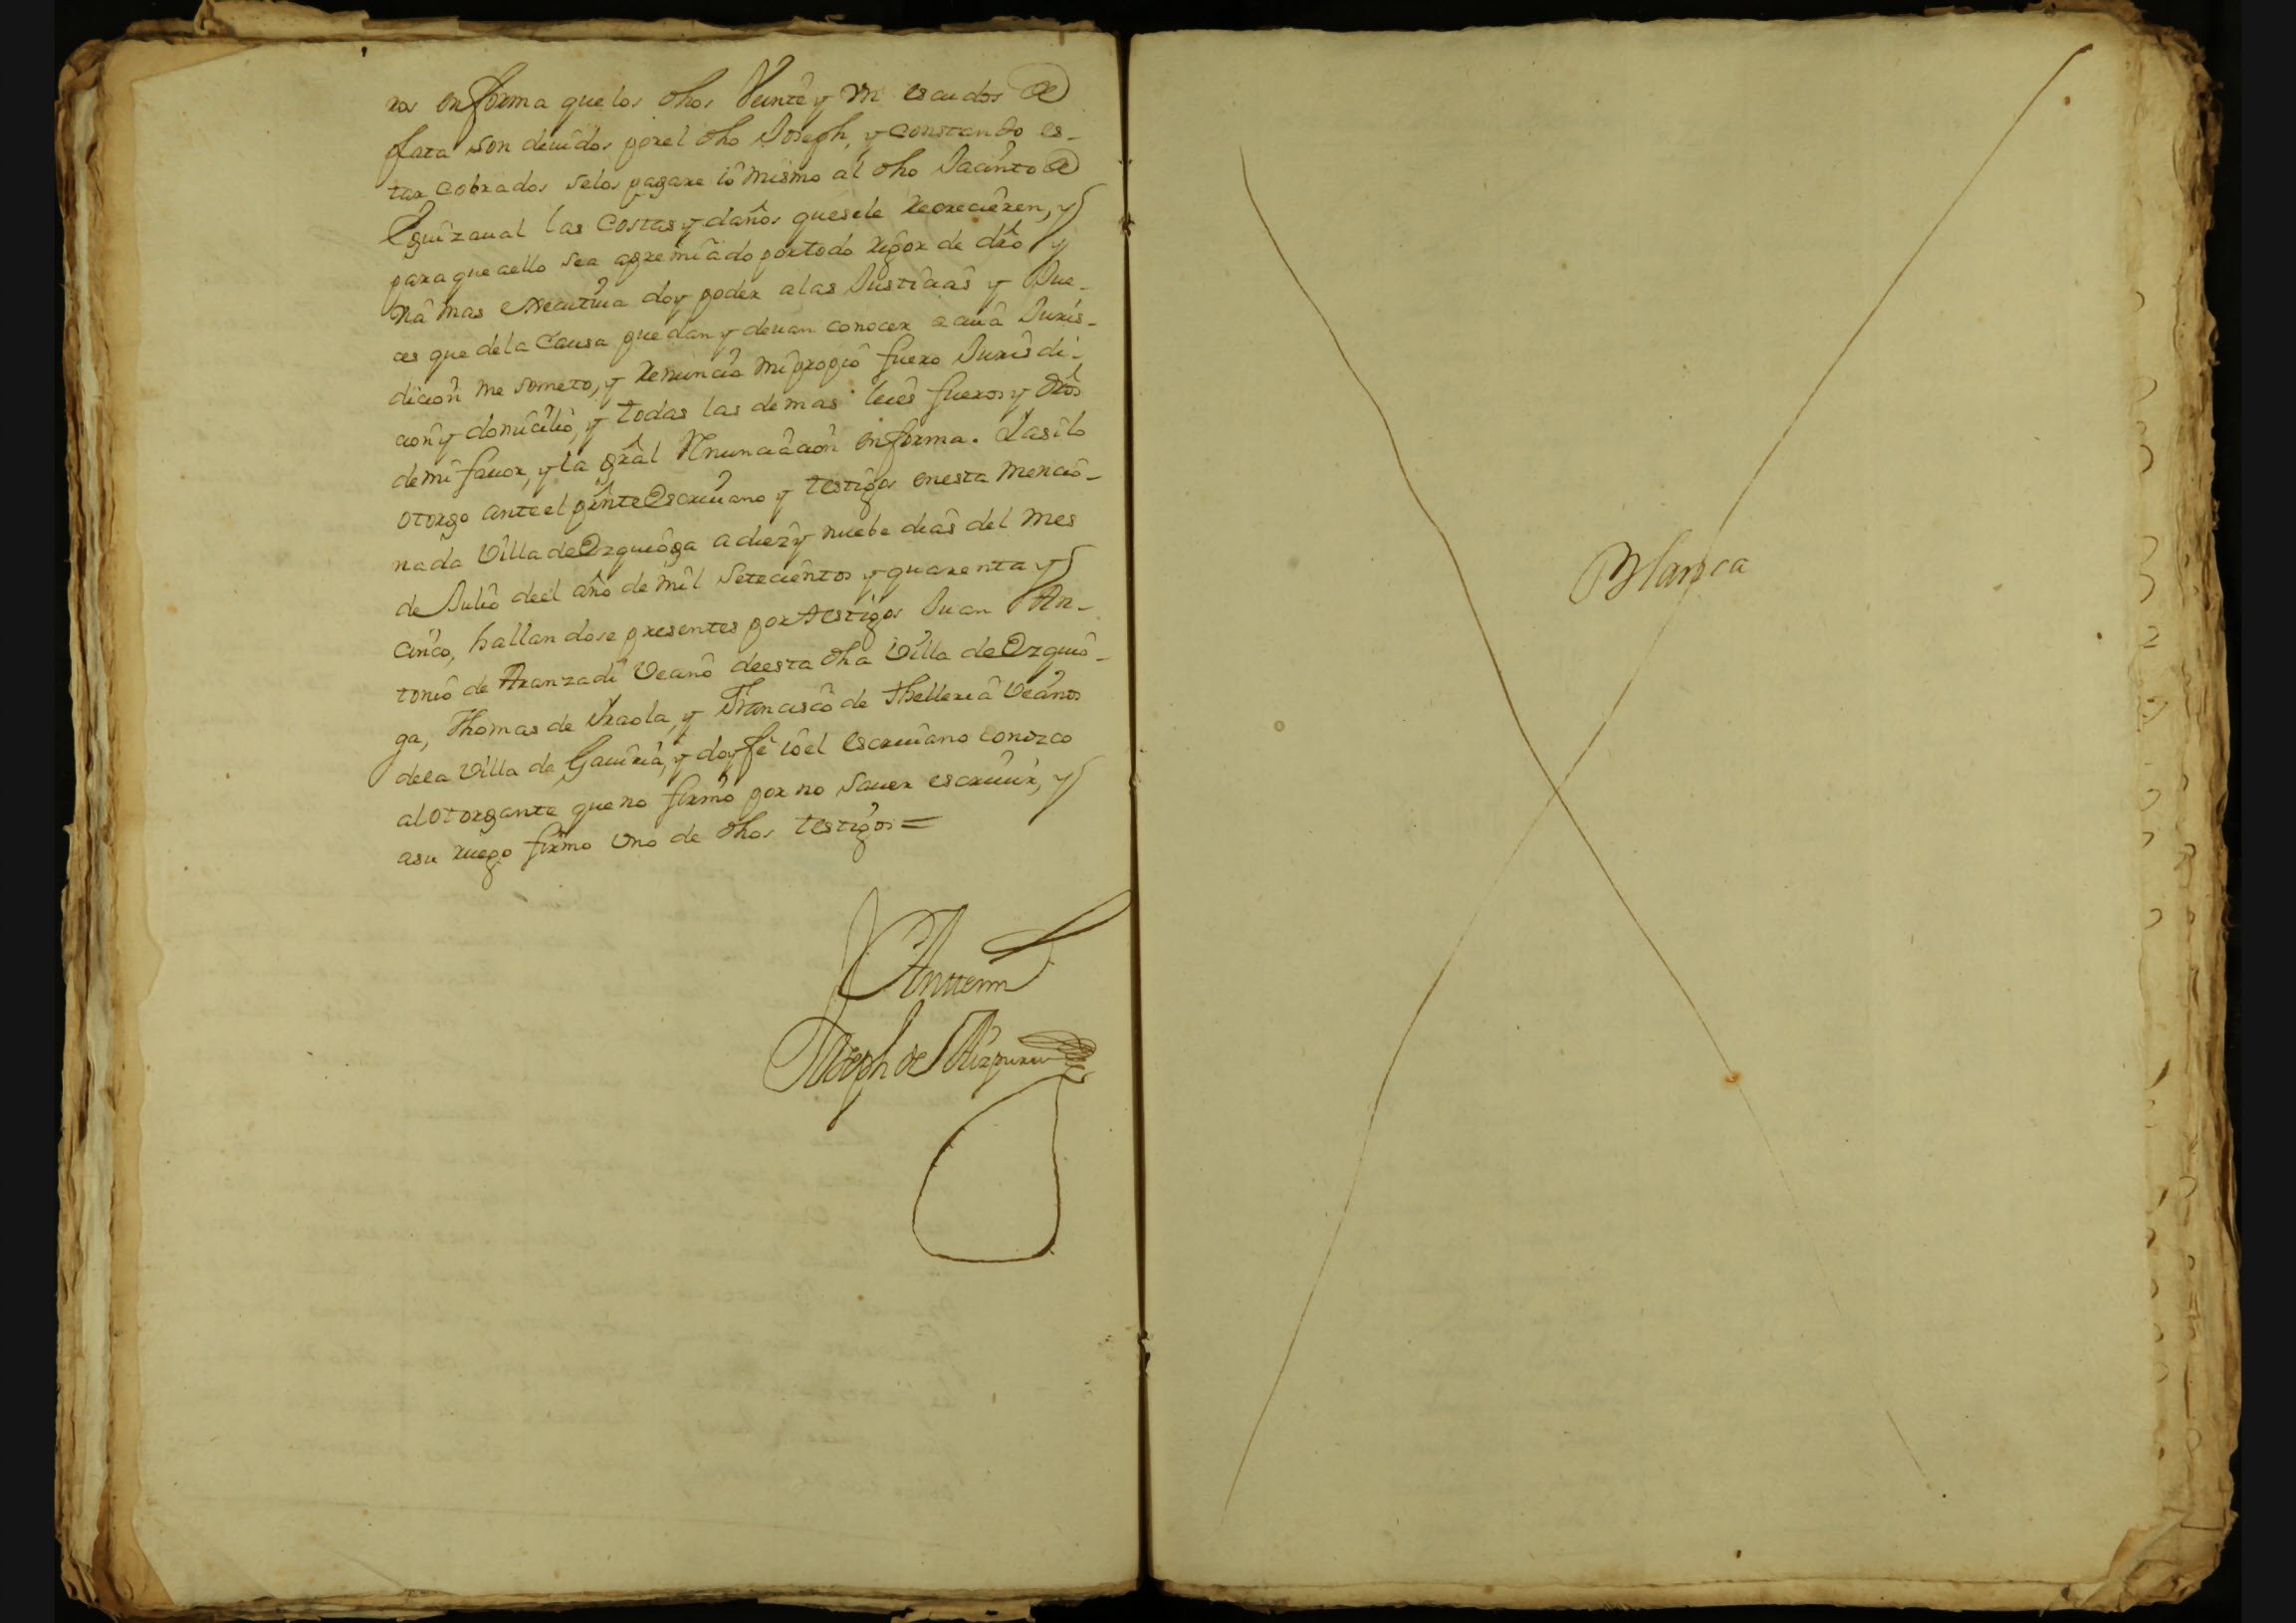 ros en forma que los dhos Veinte y Vn escudos de
plata son deuidos por el dho Joseph, y constando es-
tar cobrados selos pagare io mismo al dho Jacinto de
Eguizaual las Costas y daños que sele recrecieren, y
para que aello sea apremiado por todo rigor de dro y
via mas executiua doy poder alas Justicias y Jue-
ces que dela Causa puedan y deuan conocer a cuia Juris-
dicion me someto, y renuncio mi propio fuero Jurisdi-
cion y domicilio, y todas las demas leies fueros y dros
de mi fauor, y la gral Renunciacion en forma. Y asi lo
otorgo ante el prnte Escriuano y testigos en esta mencio-
nada Villa de Ezquioga a diez y nuebe dias del mes
de Julio deel año de mil setecientos y quarenta y
cinco, hallandose presentes por testigos Juan An-
tonio de Aranzadi Vecino de esta dha Villa de Ezquio-
ga, Thomas de Iraola, y Francisco de Thelleria Vecinos
dela Villa de Gauiria, y doy fe io el escriuano conozco
al otorgante que no firmo por no sauer escriuir, y
a su ruego firmo Vno de dhos testigos =
Anttemi
Joseph de Aizpuru
Blanca